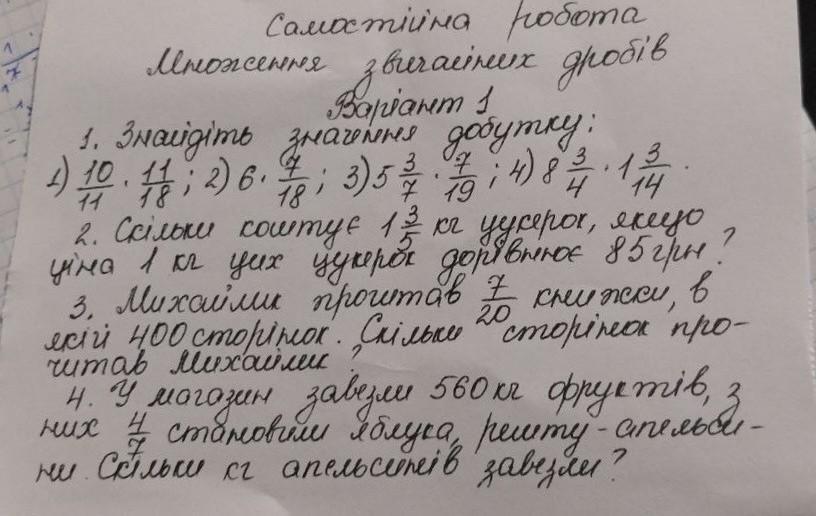 Самостійна робота
Множення звичайних дробів
Варіант 1
1. Знайдіть значення добутку:
1) 10/11 · 11/18; 2) 6 · 7/18; 3) 5 3/7 · 7/19; 4) 8 3/4 · 1 3/14.
2. Скільки коштує 1 3/5 кг цукерок, якщо
ціна 1 кг цих цукерок дорівнює 85 грн?
3. Михайлик прочитав 7/20 книжки, в
якій 400 сторінок. Скільки сторінок про-
читав Михайлик?
4. У магазин завезли 560 кг фруктів, з
них 4/7 становили яблука, решту - апельси-
ни. Скільки кг апельсинів завезли?